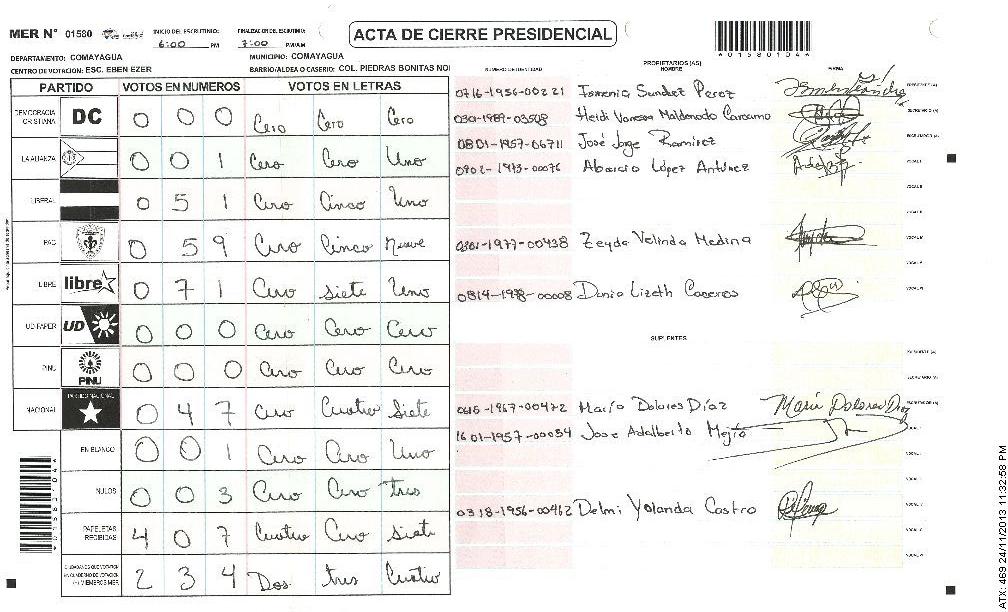 MER N° 01580
INICIO DEL ESCRUTINIO: 6:00 PM
FINALIZACION DEL ESCRUTINIO: 7:00 PM/AM
ACTA DE CIERRE PRESIDENCIAL
*01580104*
DEPARTAMENTO: COMAYAGUA
MUNICIPIO: COMAYAGUA
CENTRO DE VOTACION: ESC. EBEN EZER
BARRIO/ALDEA O CASERIO: COL. PIEDRAS BONITAS NO1
PARTIDO VOTOS EN NUMEROS VOTOS EN LETRAS
DEMOCRACIA CRISTIANA DC 0 0 0 Cero Cero Cero
LA ALIANZA 0 0 1 Cero Cero Uno
LIBERAL 0 5 1 Cero Cinco Uno
PAC 0 5 9 Cero Cinco Nueve
LIBRE libre 0 7 1 Cero Siete Uno
UD FAPER UD 0 0 0 Cero Cero Cero
PINU PINU 0 0 0 Cero Cero Cero
NACIONAL PARTIDO NACIONAL 0 4 7 Cero Cuatro Siete
EN BLANCO 0 0 1 Cero Cero Uno
NULOS 0 0 3 Cero Cero tres
PAPELETAS RECIBIDAS 4 0 7 Cuatro Cero Siete
CIUDADANOS QUE VOTARON EN CUADERNO DE VOTACION (+) MIEMBROS MER 2 3 4 Dos tres Cuatro
PROPIETARIOS (AS)
NUMERO DE IDENTIDAD NOMBRE FIRMA
0716-1956-00221 Ismenia Sundez Perez PRESIDENTE (A)
Heidi Vanesa Maldonado Carcamo SECRETARIO (A)
0801-1957-06711 José Jorge Ramirez ESCRUTADOR (A)
0902-1973-00076 López Antúnez VOCAL I
0801-1977-00438 Zeyda Velinda Medina
0814-1978-00008 Dania Lizeth Caceres
SUPLENTES
PRESIDENTE (A)
SECRETARIO (A)
0615-1967-00472 María Dolores Díaz Maria Dolores Diaz ESCRUTADOR (A)
1601-1957-00054 Jose Adalberto Mejia
0318-1956-00462 Delmi Yolanda Castro
ATX: 469 24/11/2013 11:32:58 PM